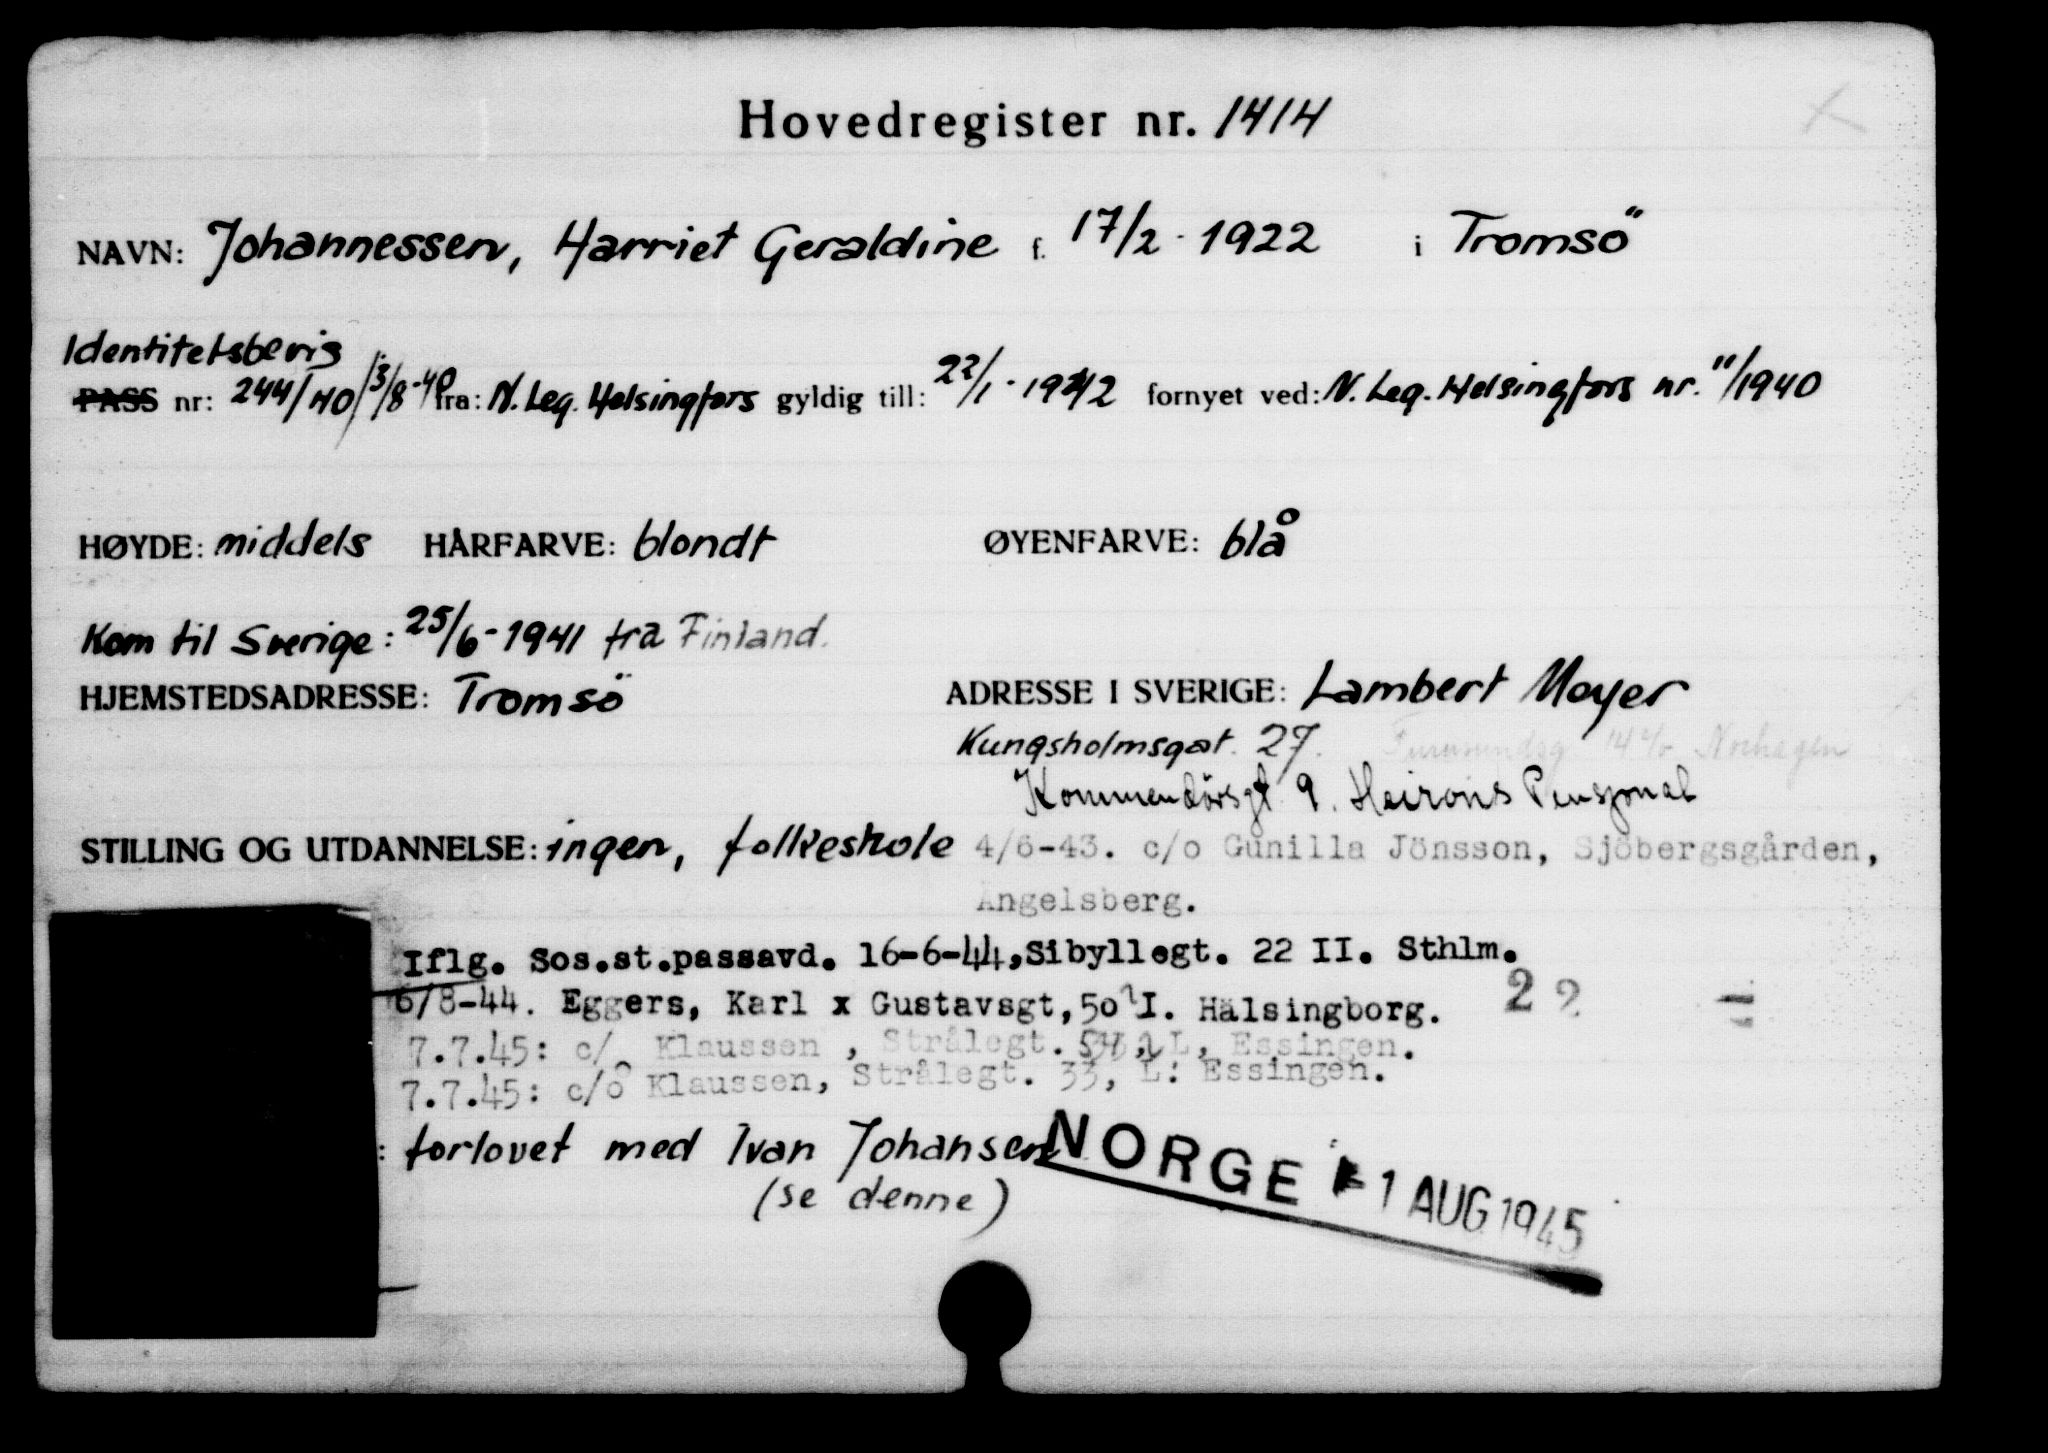 Hovedregister nr. 1414
NAVN: Johannessen, Harriet Geraldine f. 17/2 - 1922 i Tromsö
Identitetsbevis
PASS nr: 244/40/3/8-40 fra: N. Leg. Helsingfors gyldig till: 22/1 - 1942 fornyet ved: N. Leg. Helsingfors nr. 11/1940
HØYDE: middels HÅRFARVE: blondt ØYENFARVE: blå
Kom til Sverige: 25/6 - 1941 fra Finland.
HJEMSTEDSADRESSE: Tromsö ADRESSE I SVERIGE: Lambert Meyer
Kungsholmsgat. 27.
Kommendörsgt 9. Pensjonat
STILLING OG UTDANNELSE: ingen, folkeskole 4/6-43. c/o Gunilla Jönsson, Sjöbergsgården,
Ängelsberg.
Iflg. Sos.st.passavd. 16-6-44, Sibyllegt. 22 II. Sthlm.
6/8-44. Eggers, Karl x Gustavsgt, 50 I. Hälsingborg. 22
7.7.45: c/o Klaussen, Strålegt. L, Essingen.
7.7.45: c/o Klaussen, Strålegt. 33, L: Essingen.
: forlovet med Ivan Johansen
(se denne)
NORGE 1 AUG 1945